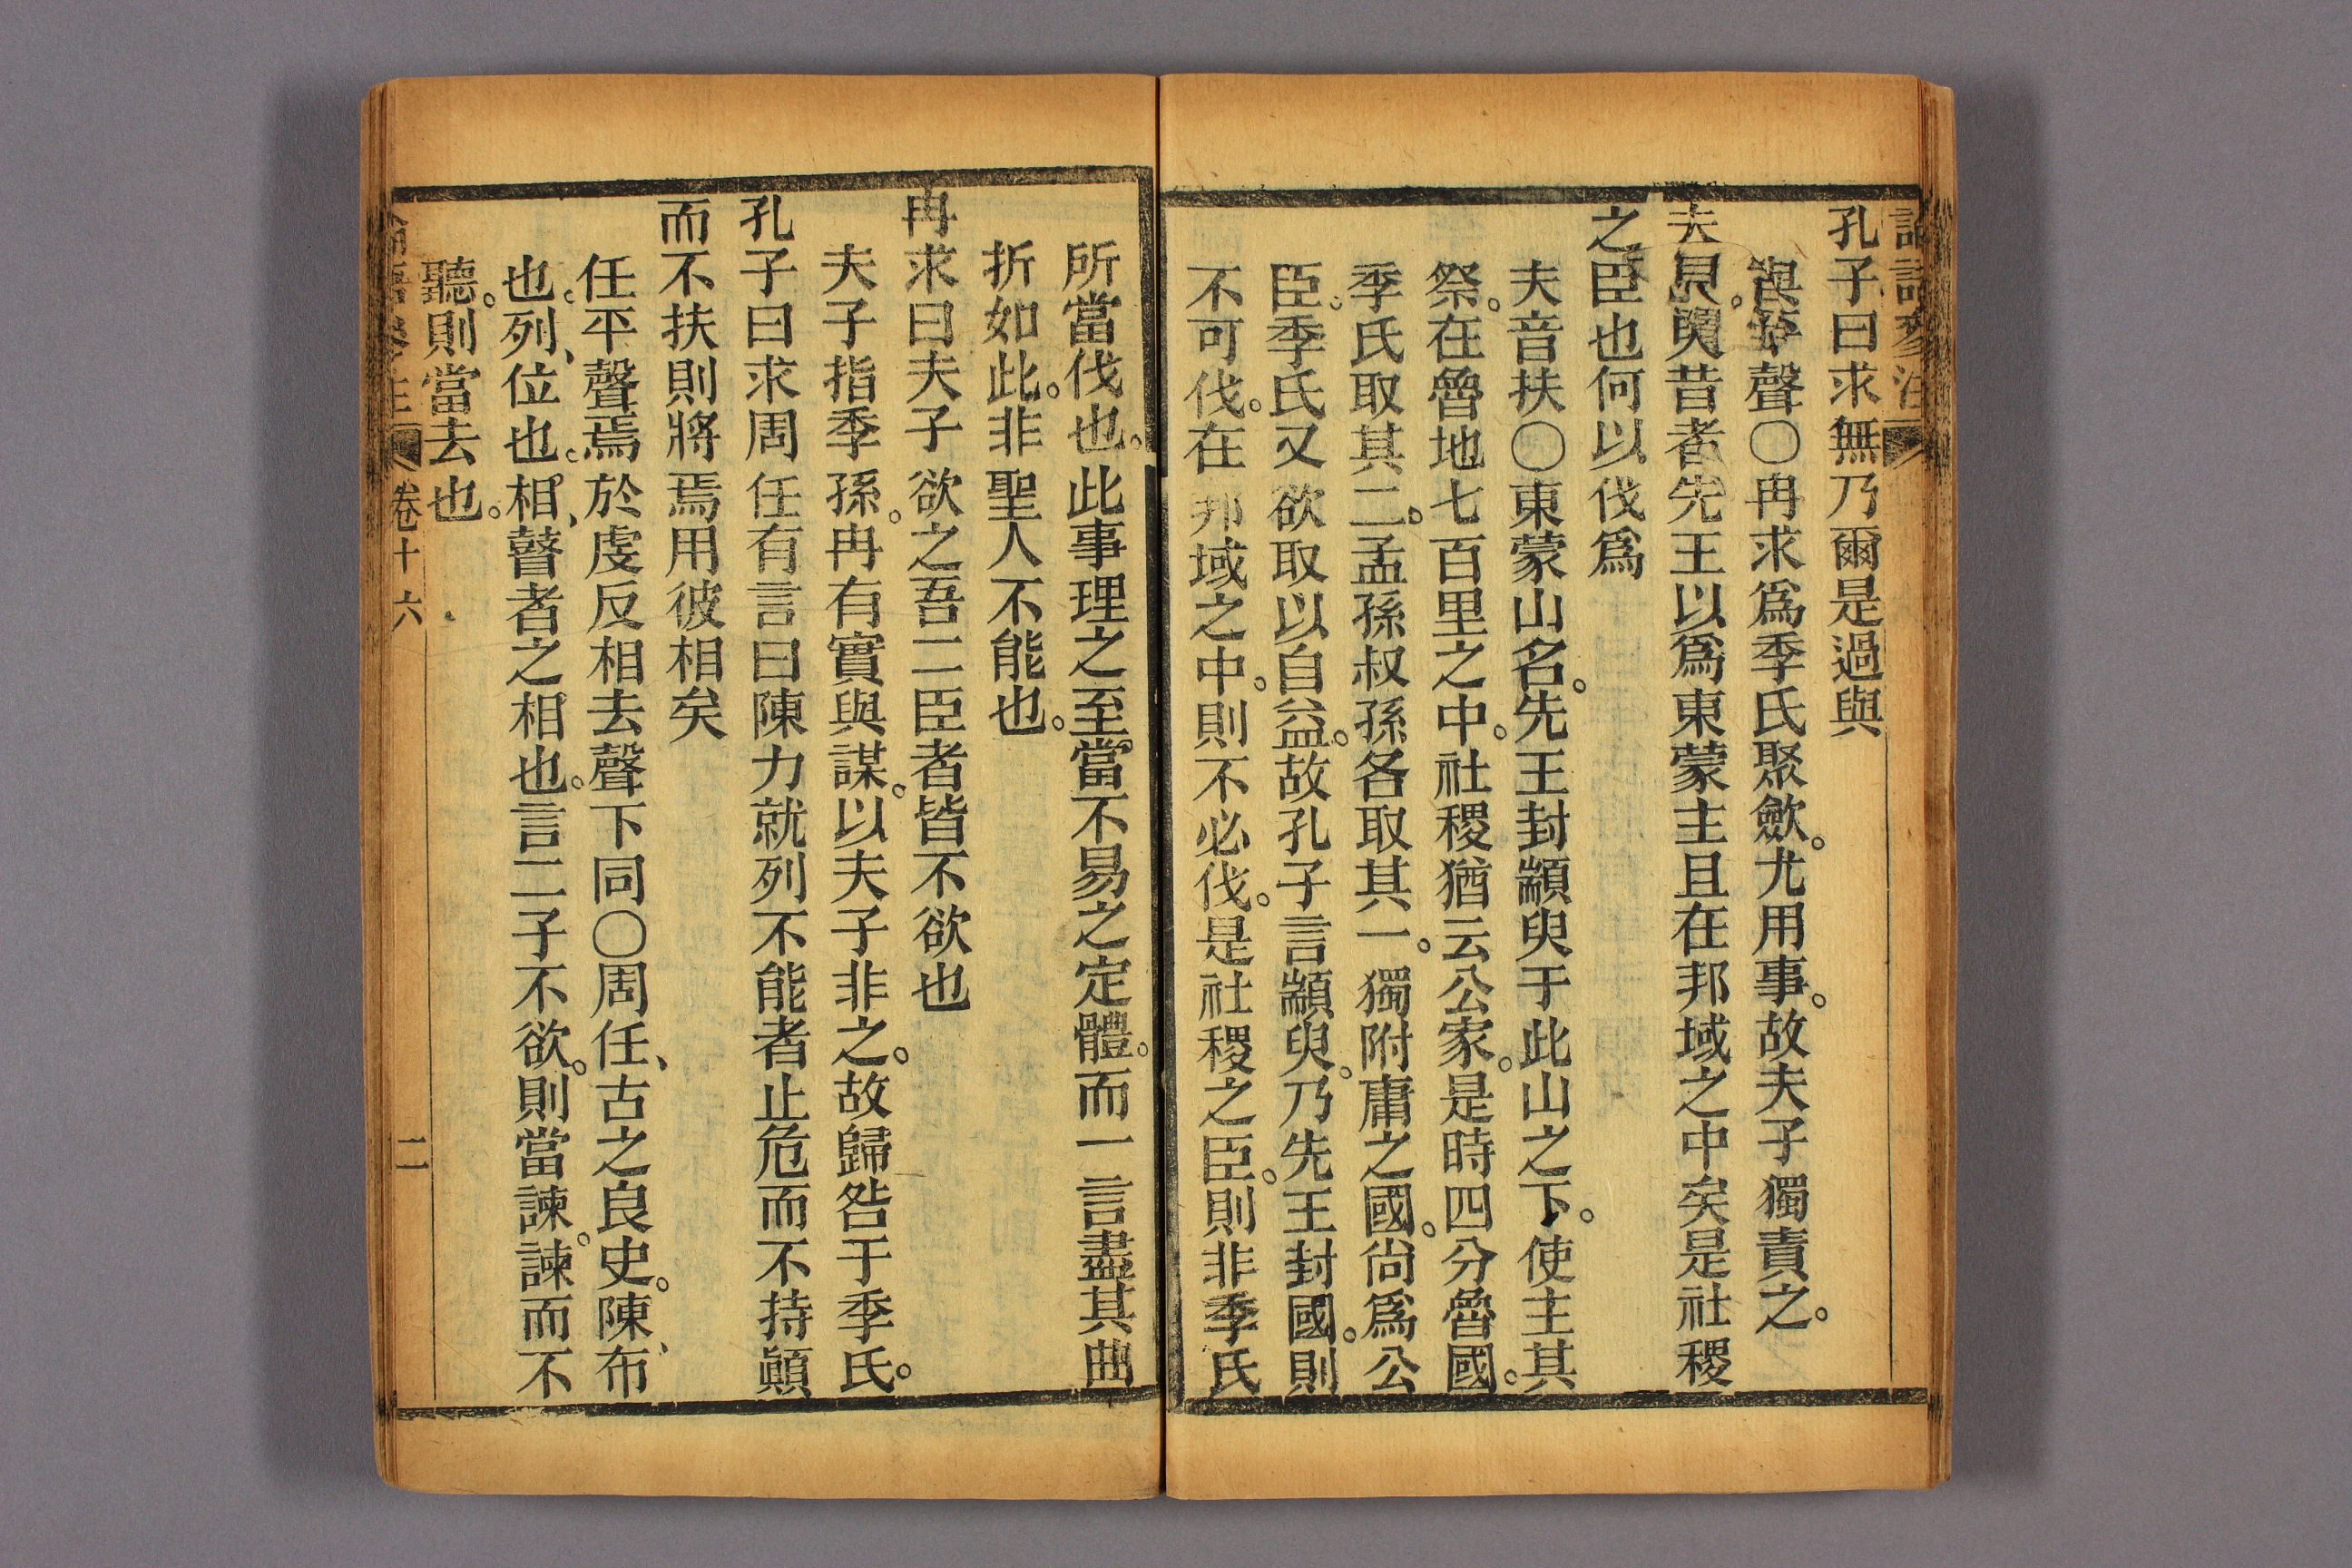 孔子曰求無乃爾是過與
與平聲○冉求爲季氏聚斂。尤用事。故夫子獨責之。
夫顓臾昔者先王以爲東蒙主且在邦域之中矣是社稷
之臣也何以伐爲
夫音扶○東蒙山名。先王封顓臾于此山之下。使主其
祭。在魯地七百里之中。社稷猶云公家。是時四分魯國。
季氏取其二。孟孫叔孫各取其一。獨附庸之國。尚爲公
臣。季氏又欲取以自益。故孔子言顓臾。乃先王封國。則
不可伐。在邦域之中。則不必伐。是社稷之臣。則非季氏
所當伐也。此事理之至當。不易之定體。而一言盡其曲
折如此。非聖人不能也。
冉求曰夫子欲之吾二臣者皆不欲也
夫子指季孫。冉有實與謀。以夫子非之。故歸咎于季氏。
孔子曰求周任有言曰陳力就列不能者止危而不持顚
而不扶則將焉用彼相矣
任平聲焉於虔反相去聲下同○周任、古之良史。陳、布
也。列、位也。相、瞽者之相也。言二子不欲。則當諫。諫而不
聽。則當去也。
卷十六
二